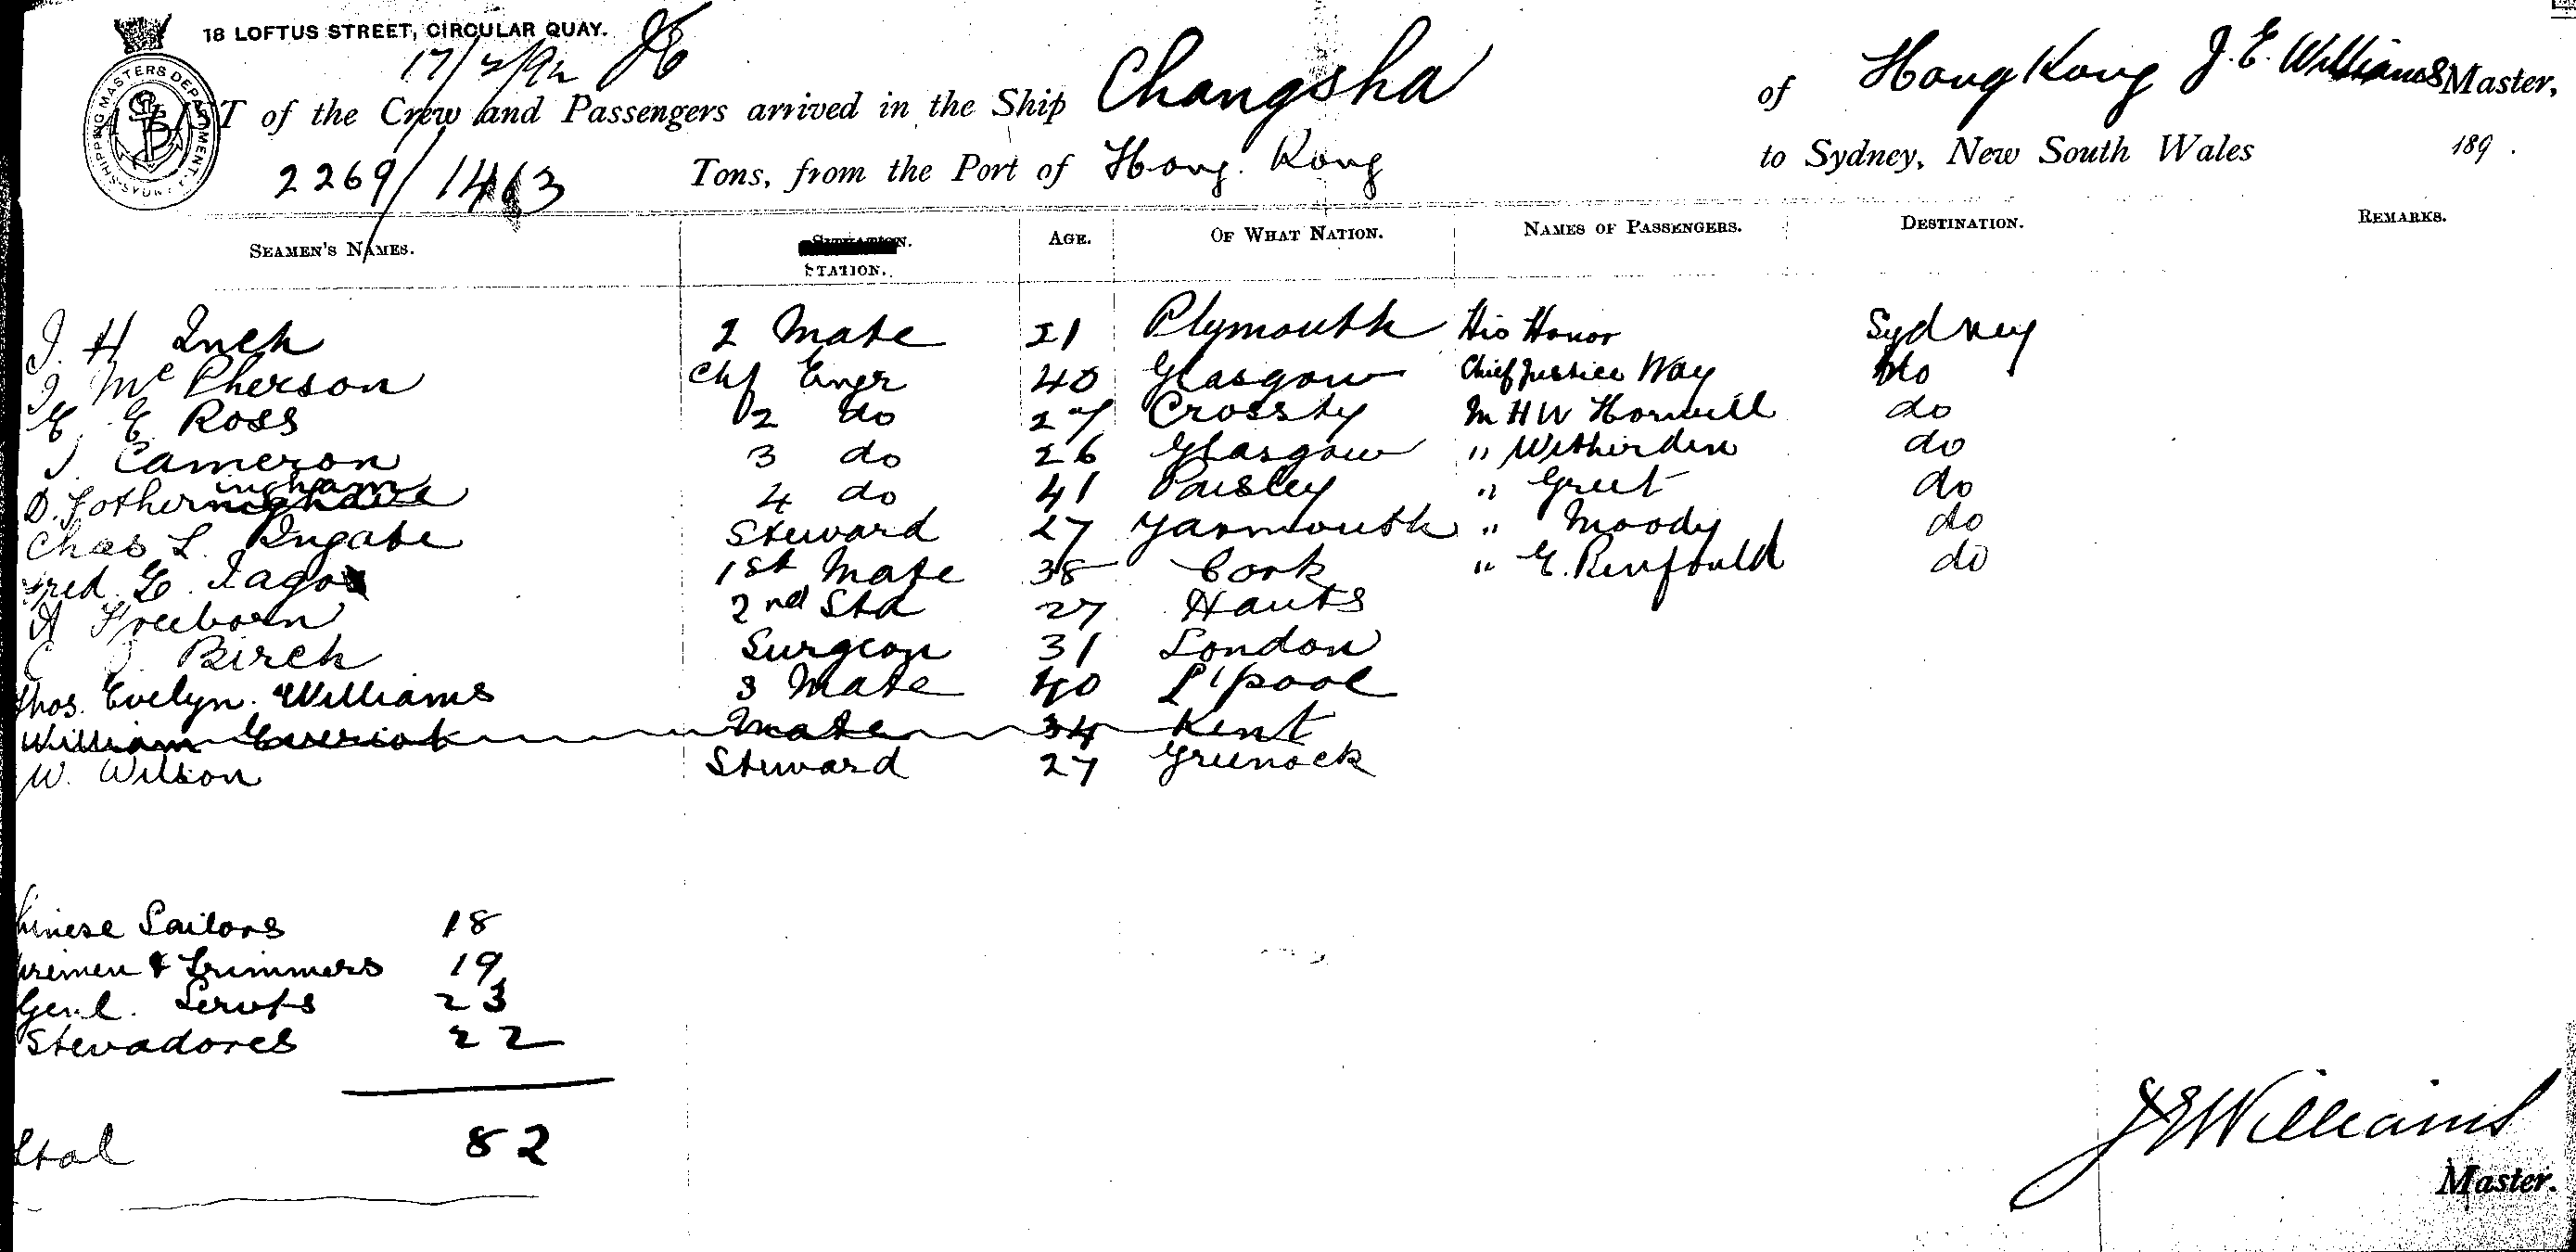 18 LOFTUS STREET, CIRCULAR QUAY.
17/2/92
SHIPPING MASTERS DEPARTMENT SYDNEY
A LIST of the Crew and Passengers arrived in the Ship Changsha of Hong Kong J. E. Williams Master,
2269/1463 Tons, from the Port of Hong. Kong to Sydney, New South Wales 189 .
SEAMEN'S NAMES. STATION. AGE. OF WHAT NATION. NAMES OF PASSENGERS. DESTINATION. REMARKS.
J. H Inch 2 Mate 21 Plymouth His Honor Sydney
J McPherson Chf Engr 40 Glasgow Chief Justice Way do
E. E. Ross 2 do 27 Crossby M H W Horwill do
J Cameron 3 do 26 Glasgow " Witherden do
D. Fotheringham 4 do 41 Paisley " Greet do
Chas L. Ingate Steward 27 Yarmouth " Moody do
Fred. G. Jago 1st Mate 38 Cork " E. Renfould do
A Freeborn 2nd Std 27 Hants
C J. Birch Surgeon 31 London
Thos. Evelyn. Williams 3 Mate 40 L'pool
William Mate 34 Kent
W. Wilson Steward 27 Greenock
Chinese Sailors 18
Firemen & Trimmers 19
Genl. Servts 23
Stevadores 22
Total 82
J E Williams
Master.